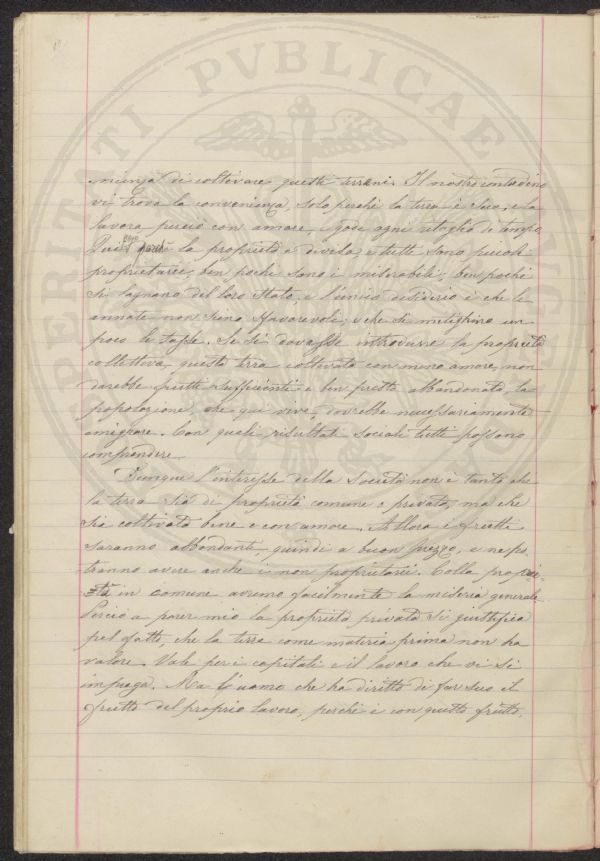 PROSPERITATI PVBLICAE
nienza di coltivare questi terreni. Il nostro contadino
vi trova la convenienza, solo perché la terra è sua, e la
lavora perciò con amore, e gode ogni ritaglio di tempo.
Qui la proprietà è divisa, e tutti sono piccoli
proprietarii; ben pochi sono i miserabili; ben pochi
si lagnano del loro stato, e l'unico desiderio è che le
annate non sieno sfavorevoli, e che si mitighino un
poco le tasse. Se si dovesse introdurre la proprietà
collettiva, questa terra coltivata con meno amore, non
darebbe frutti sufficienti e ben presto abbandonata, la
popolazione, che qui vive, dovrebbe necessariamente
emigrare. Con quali risultati sociali tutti possono
comprendere.
Dunque l'interesse della società non è tanto che
la terra sia di proprietà comune o privata, ma che
sia coltivata bene e con amore. Allora i frutti
saranno abbondanti, quindi a buon prezzo, e ne po-
tranno avere anche i non proprietarii. Colla proprie-
tà in comune avremo facilmente la miseria generale.
Perciò a parer mio la proprietà privata si giustifica
pel fatto, che la terra come materia prima non ha
valore. Vale per i capitali e il lavoro che vi si
impiega. Ma l'uomo che ha diritto di far suo il
frutto del proprio lavoro, perché è con questo frutto,